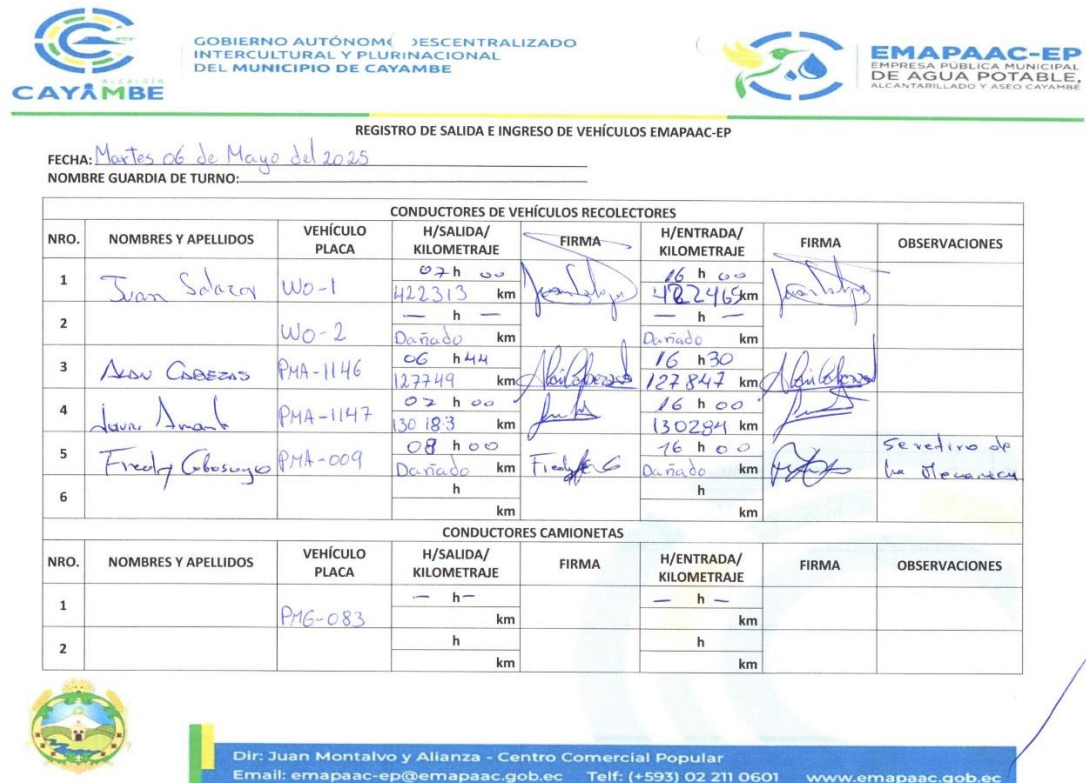 GOBIERNO AUTÓNOMO DESCENTRALIZADO
INTERCULTURAL Y PLURINACIONAL
DEL MUNICIPIO DE CAYAMBE
ALCALDÍA
CAYAMBE
EMAPAAC-EP
EMPRESA PÚBLICA MUNICIPAL
DE AGUA POTABLE,
ALCANTARILLADO Y ASEO CAYAMBE
REGISTRO DE SALIDA E INGRESO DE VEHÍCULOS EMAPAAC-EP
FECHA: Martes 06 de Mayo del 2025
NOMBRE GUARDIA DE TURNO:
CONDUCTORES DE VEHÍCULOS RECOLECTORES
NRO. NOMBRES Y APELLIDOS VEHÍCULO PLACA H/SALIDA/ KILOMETRAJE FIRMA H/ENTRADA/ KILOMETRAJE FIRMA OBSERVACIONES
1 Juan Salazar WO-1 07 h 00 16 h 00
422313 km 422465 km
2 WO-2 — h — — h —
Dañado km Dañado km
3 Alan Cabezas PMA-1146 06 h 44 16 h 30
127749 km 127847 km
4 PMA-1147 07 h 00 16 h 00
130183 km 130284 km
5 Fredy PMA-009 08 h 00 16 h 00 Se retiro de
Dañado km Dañado km la Mecanica
6 h h
km km
CONDUCTORES CAMIONETAS
NRO. NOMBRES Y APELLIDOS VEHÍCULO PLACA H/SALIDA/ KILOMETRAJE FIRMA H/ENTRADA/ KILOMETRAJE FIRMA OBSERVACIONES
1 PMG-083 — h — — h —
km km
2 h h
km km
Dir: Juan Montalvo y Alianza - Centro Comercial Popular
Email: emapaac-ep@emapaac.gob.ec Telf: (+593) 02 211 0601 www.emapaac.gob.ec